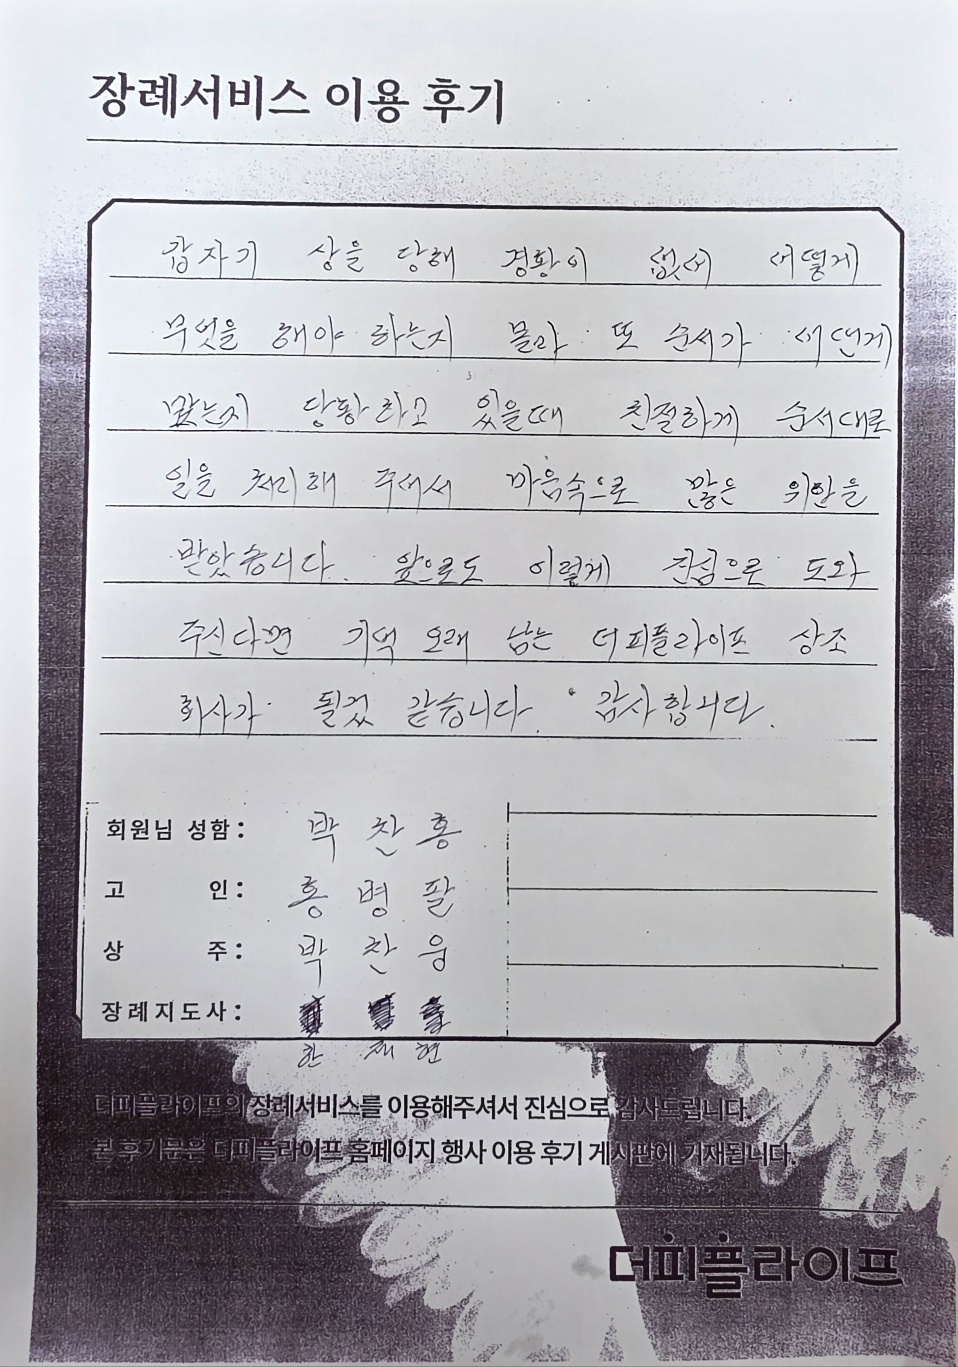 장례서비스 이용 후기
갑자기 상을 당해 경황이 없서 어떻게
무엇을 해야 하는지 몰라 또 순서가 어떤게
맞는지 당황하고 있을때 친절하게 순서대로
일을 처리해 주셔서 마음속으로 많은 위안을
받았습니다. 앞으로도 이렇게 진심으로 도와
주신다면 기억 오래 남는 더피플라이프 상조
회사가 될것 같습니다. 감사합니다.
회원님 성함: 박찬홍
고 인: 홍병팔
상 주: 박찬웅
장례지도사:
한재현
더피플라이프의 장례서비스를 이용해주셔서 진심으로 감사드립니다.
본 후기문은 더피플라이프 홈페이지 행사 이용 후기 게시판에 기재됩니다.
더피플라이프